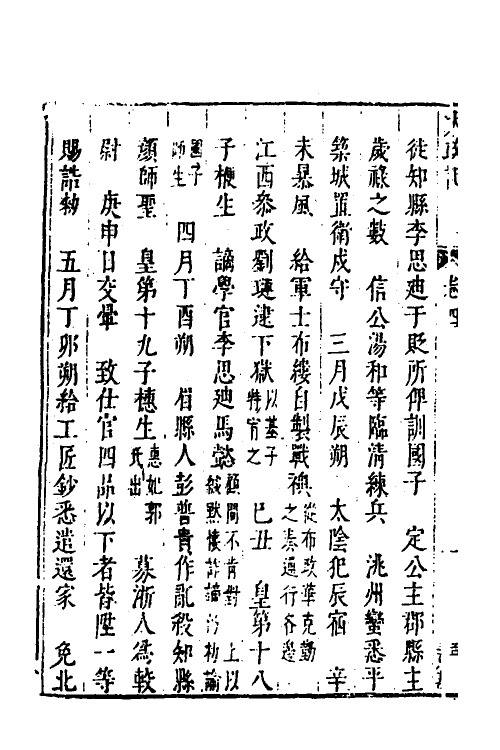 徙知縣李思廸于貶所俾訓國子　定公主郡縣主
歲祿之數　信公湯和等臨清練兵　洮州蠻悉平
築城置衛戍守　三月戊辰朔　太陰犯辰宿　辛
未暴風　給軍士布縷自製戰襖從布政華克勤之奏通行各邊
江西叅政劉璉逮下獄以基子特宥之　己丑　皇第十八
子楩生　謫學官李思廸馬懿顧問不肯對上以緘默謫諭
國子師生　四月丁酉朔　眉縣人彭普貴作亂殺知縣
顔師聖　皇第十九子橞生惠妃郭氏出　募浙人爲較
尉　庚申日交暈　致仕官四品以下者皆陞一等
賜誥勑　五月丁卯朔給工匠鈔悉遣還家　免北
卷四